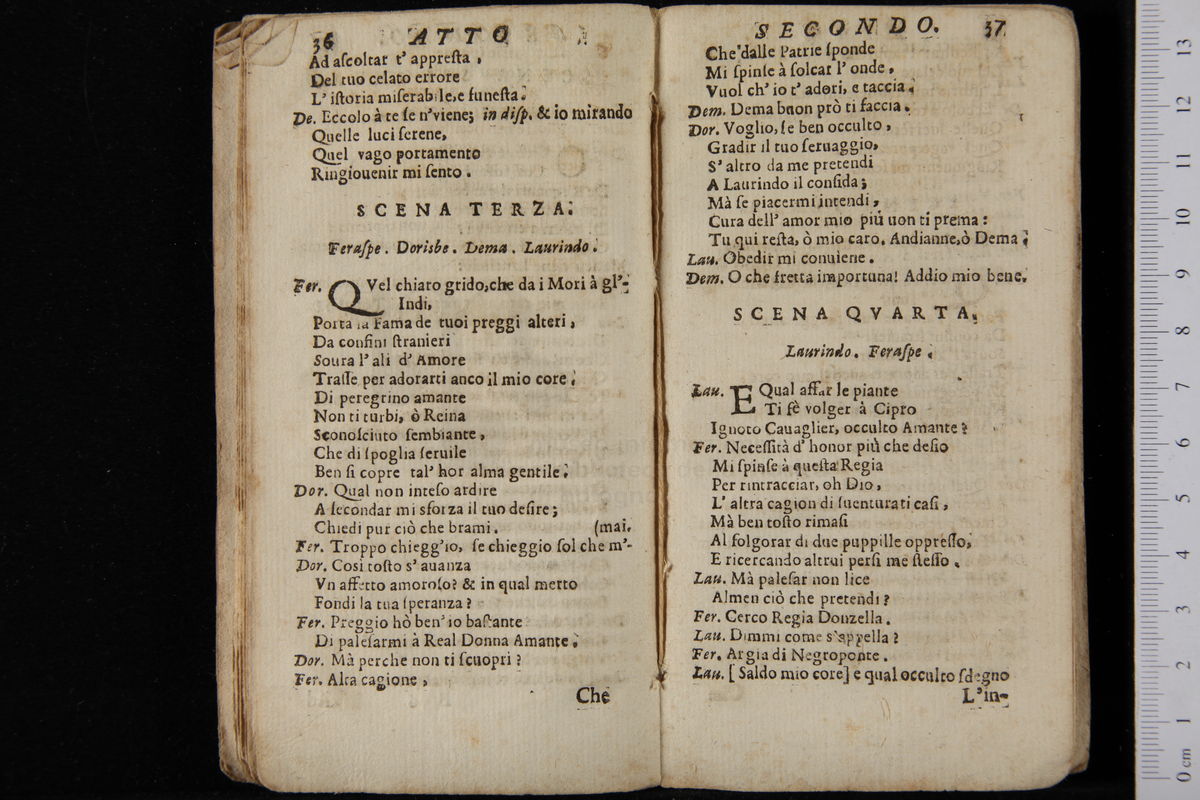 36 ATTO
Ad aſcoltar t' appreſta ,
Del tuo celato errore
L' iſtoria miſerabile,e funeſta.
De. Eccolo à te ſe n'viene; in diſp. & io mirando
Quelle luci ſerene,
Quel vago portamento
Ringiouenir mi ſento .
SCENA TERZA.
Feraſpe . Dorisbe . Dema . Laurindo .
Fer. QVel chiaro grido,che da i Mori à gl'-
Indi,
Porta la Fama de tuoi preggi alteri ,
Da confini ſtranieri
Soura l' ali d' Amore
Traſſe per adorarti anco il mio core .
Di peregrino amante
Non ti turbi, ò Reina
Sconoſciuto ſembiante ,
Che di ſpoglia ſeruile
Ben ſi copre tal' hor alma gentile .
Dor. Qual non inteſo ardire
A ſecondar mi sforza il tuo deſire ;
Chiedi pur ciò che brami . (mai,
Fer. Troppo chiegg'io, ſe chieggio ſol che m'-
Dor. Cosi toſto s' auanza
Vn affetto amoroſo? & in qual metto
Fondi la tua ſperanza ?
Fer. Preggio hò ben' io baſtante
Di paleſarmi à Real Donna Amante .
Dor. Mà perche non ti ſcuopri ?
Fer. Alta cagione ,
Che
SECONDO. 37
Che dalle Patrie ſponde
Mi ſpinſe à ſolcar l' onde ,
Vuol ch' io t' adori, e taccia .
Dem. Dema buon prò ti faccia .
Dor. Voglio, ſe ben occulto ,
Gradir il tuo ſeruaggio,
S' altro da me pretendi
A Laurindo il confida ;
Mà ſe piacermi intendi ,
Cura dell' amor mio più uon ti prema :
Tu qui reſta, ò mio caro. Andianne,ò Dema ;
Lau. Obedir mi conuiene .
Dem. O che fretta importuna! Addio mio bene.
SCENA QVARTA.
Laurindo . Feraſpe .
Lau. E Qual affar le piante
Ti fè volger à Cipro
Ignoto Cauaglier, occulto Amante ?
Fer. Neceſſità d' honor più che deſio
Mi ſpinſe à queſta Regia
Per rintracciar, oh Dio ,
L' altra cagion di ſuenturati caſi ,
Mà ben toſto rimaſi
Al folgorar di due puppille oppreſſo,
E ricercando altrui perſi me ſteſſo .
Lau. Mà paleſar non lice
Almen ciò che pretendi ?
Fer. Cerco Regia Donzella .
Lau. Dimmi come s'appella ?
Fer. Argia di Negroponte .
Lau. [ Saldo mio core] e qual occulto ſdegno
L'in-
0 cm 1 2 3 4 5 6 7 8 9 10 11 12 13